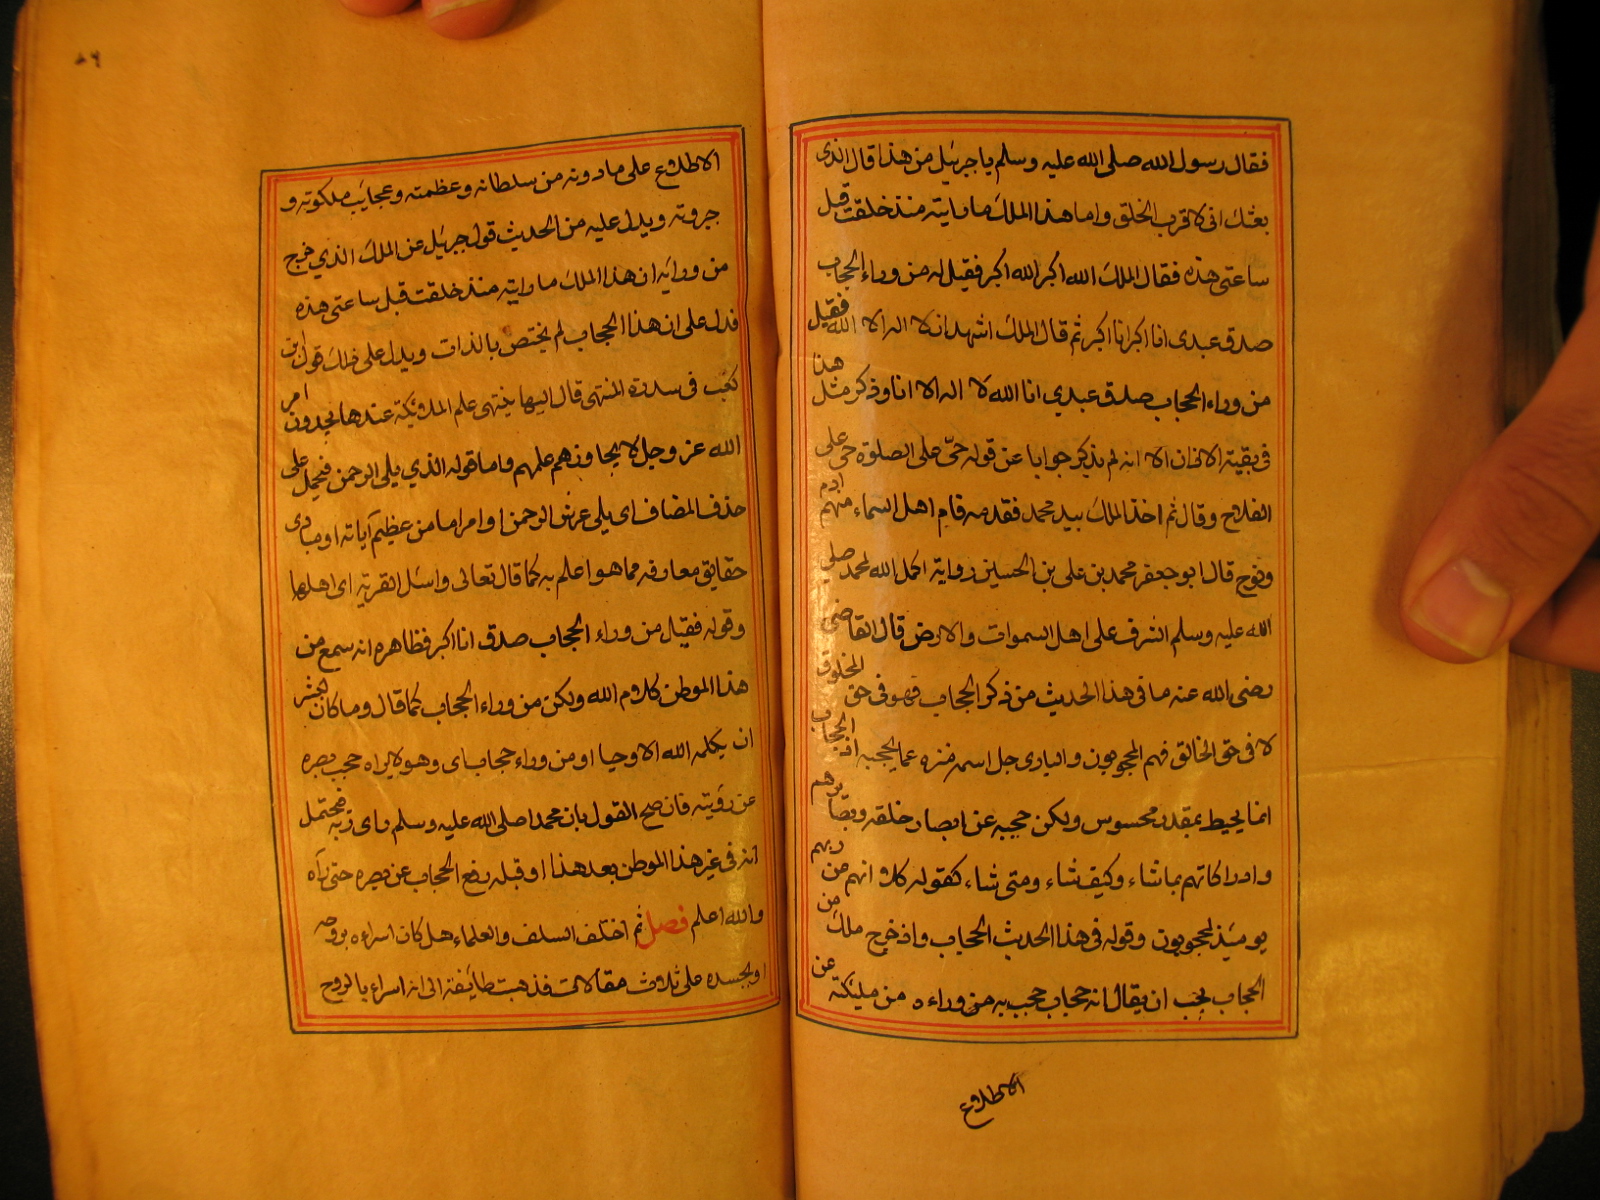 فقال رسول الله صلى الله عليه وسلم يا جبرئيل من هذا قال الذى
بعثك انى لاقرب الخلق واما هذا الملك ما رايته منذ خلقت قبل
ساعتى هذه فقال الملك الله اكبر الله اكبر فقيل له من وراء الحجاب
صدق عبدى انا اكبر انا اكبر ثم قال الملك اشهد ان لا اله الا الله فقيل
من وراء الحجاب صدق عبدي انا الله لا اله الا انا وذكر مثل هذا
فى بقية الاذان الا انه لم يذكر جوابا عن قوله حىّ على الصلوة حى على
الفلاح وقال ثم اخذ الملك بيد محمد فقدمه فام اهل السماء منهم ادم
ونوح قال ابو جعفر محمد بن على بن الحسين رواية اكمل الله لمحمد صلى
الله عليه وسلم الشرف على اهل السموات والارض قال القاضى
رضى الله عنه ما فى هذا الحديث من ذكر الحجاب فهو فى حق المخلوق
لا فى حق الخالق فهم المحجوبون والبارى جل اسمه منزه عما يحجبه اذ الحجاب
انما يحيط بمقدر محسوس ولكن حجبه عن ابصار خلقه وبصايرهم
وادراكاتهم بما شاء وكيف شاء ومتى شاء كقوله كلا انهم عن ربهم
يوميذ لمحجوبون وقوله فى هذا الحديث الحجاب واذ خرج ملك من
الحجاب يجب ان يقال انه حجاب حجب به من وراءه من مليكته عن
الاطلاع
٤٦
الاطلاع على ما دونه من سلطانه وعظمته وعجايب ملكوته و
جبروته ويدل عليه من الحديث قول جبريل عن الملك الذي خرج
من ورايه ان هذا الملك ما رايته منذ خلقت قبل ساعتى هذه
فدل على ان هذا الحجاب لم يختص بالذات ويدل على ذلك قول ابن
كعب فى سدرة المنتهى قال اليها ينتهى علم الملائكة عندها يجدون امر
الله عز وجل لا يجاوزهم علمهم واما قوله الذي يلى الرحمن فيحمل على
حذف المضاف اى يلى عرش الرحمن او امرا ما من عظيم آياته او مبادى
حقايق معارفه مما هو اعلم به كما قال تعالى واسئل القرية اى اهلها
وقوله فقيل من وراء الحجاب صدق انا اكبر فظاهره انه سمع من
هذا الموطن كلام الله ولكن من وراء الحجاب كما قال وما كان لبشر
ان يكلمه الله الا وحيا او من وراء حجاب اى وهو لا يراه حجب بصره
عن رؤيته فان صح القول بان محمدا صلى الله عليه وسلم راى ربه فيحتمل
انه فى غير هذا الموطن بعد هذا او قبله رفع الحجاب عن بصره حتى رآه
والله اعلم فصل ثم اختلف السلف والعلماء هل كان اسراءه بروحه
او بجسده على ثلاث مقالات فذهبت طايفة الى انه اسراء بالروح